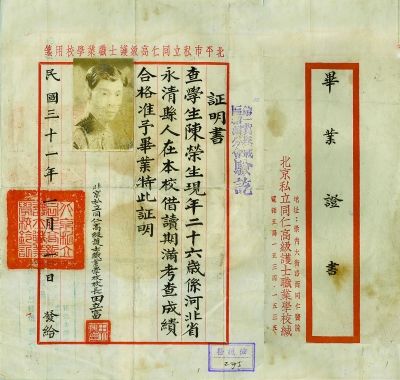 北平市私立同仁高級護士職業學校用箋
畢業證書
地址：崇內大街路西同仁醫院
北京私立同仁高級護士職業學校緘
證明書
查學生陳榮生現年二十六歲係河北省
永清縣人在本校借讀期滿考查成績
合格准予畢業特此証明
北京私立同仁高級護士職業學校校長田立富
民國三十一年 月 日發給
驗訖